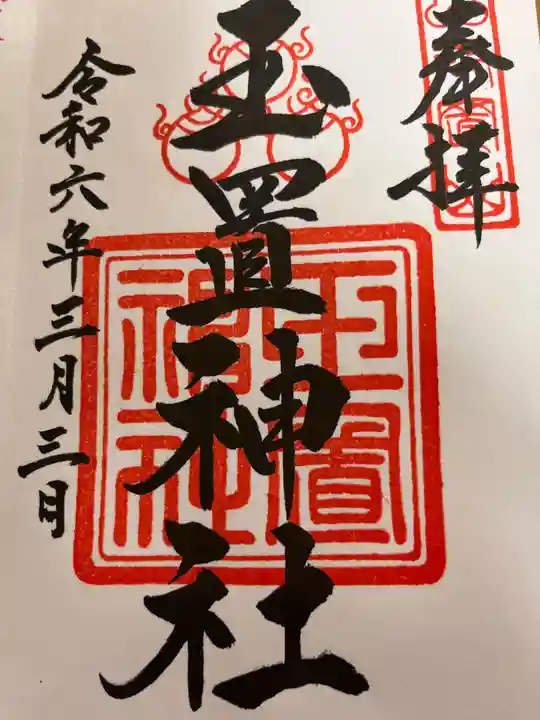 奉拝
玉置神社
玉置神社
令和六年三月三日